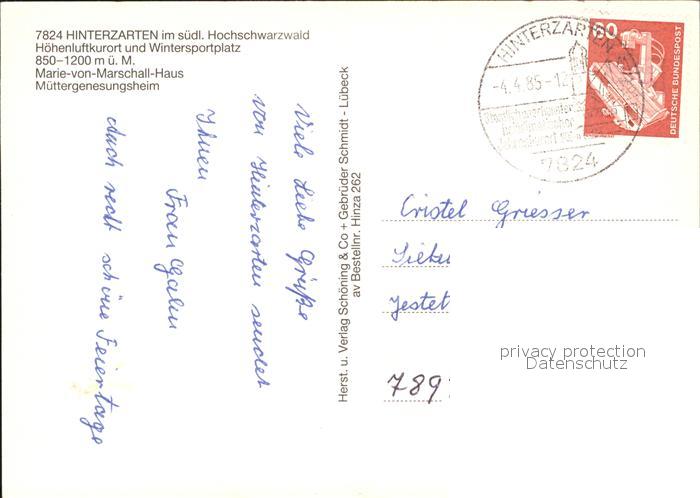 7824 HINTERZARTEN im südl. Hochschwarzwald
Höhenluftkurort und Wintersportplatz
850–1200 m ü. M.
Marie-von-Marschall-Haus
Müttergenesungsheim
Viele Liebe Grüße
von Hinterzarten sendet
Ihnen
Frau
Auch recht schöne Feiertage
Herst. u. Verlag Schöning & Co + Gebrüder Schmidt - Lübeck
av Bestellnr. Hinza 262
HINTERZARTEN
-4.4.85-12
7824
60
DEUTSCHE BUNDESPOST
Cristel Griesser
Jestet
789
privacy protection
Datenschutz